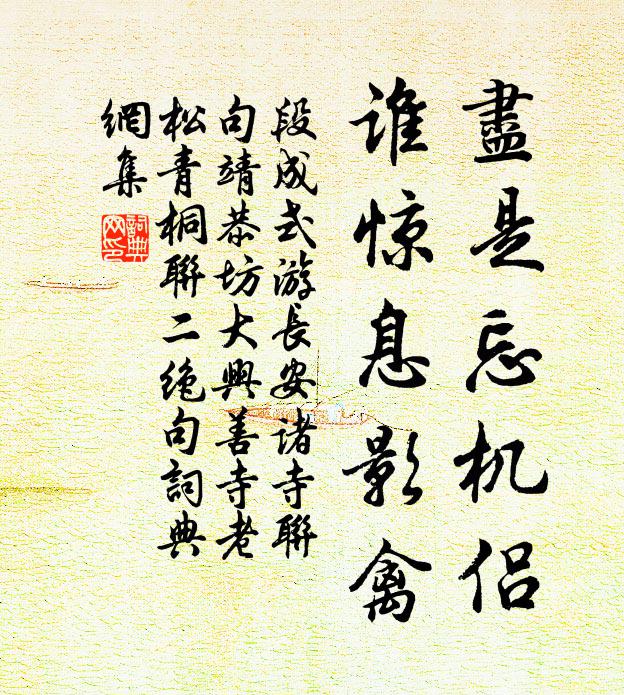 盡是忘机侣
谁惊息影禽
段成式游長安诸寺聯
句靖恭坊大興善寺老
松青桐聯二绝句詞典
網集
詞典
网印